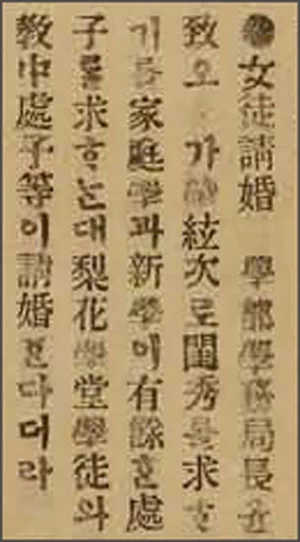 ●女徒請婚 學部學務局長윤
致오 가 絃次로閨秀를求ᄒᆞ
기를家庭學과新學이有餘ᄒᆞᆫ處
子를求ᄒᆞ는대梨花學堂學徒와
敎中處子等이請婚ᄒᆞᆫ다더라